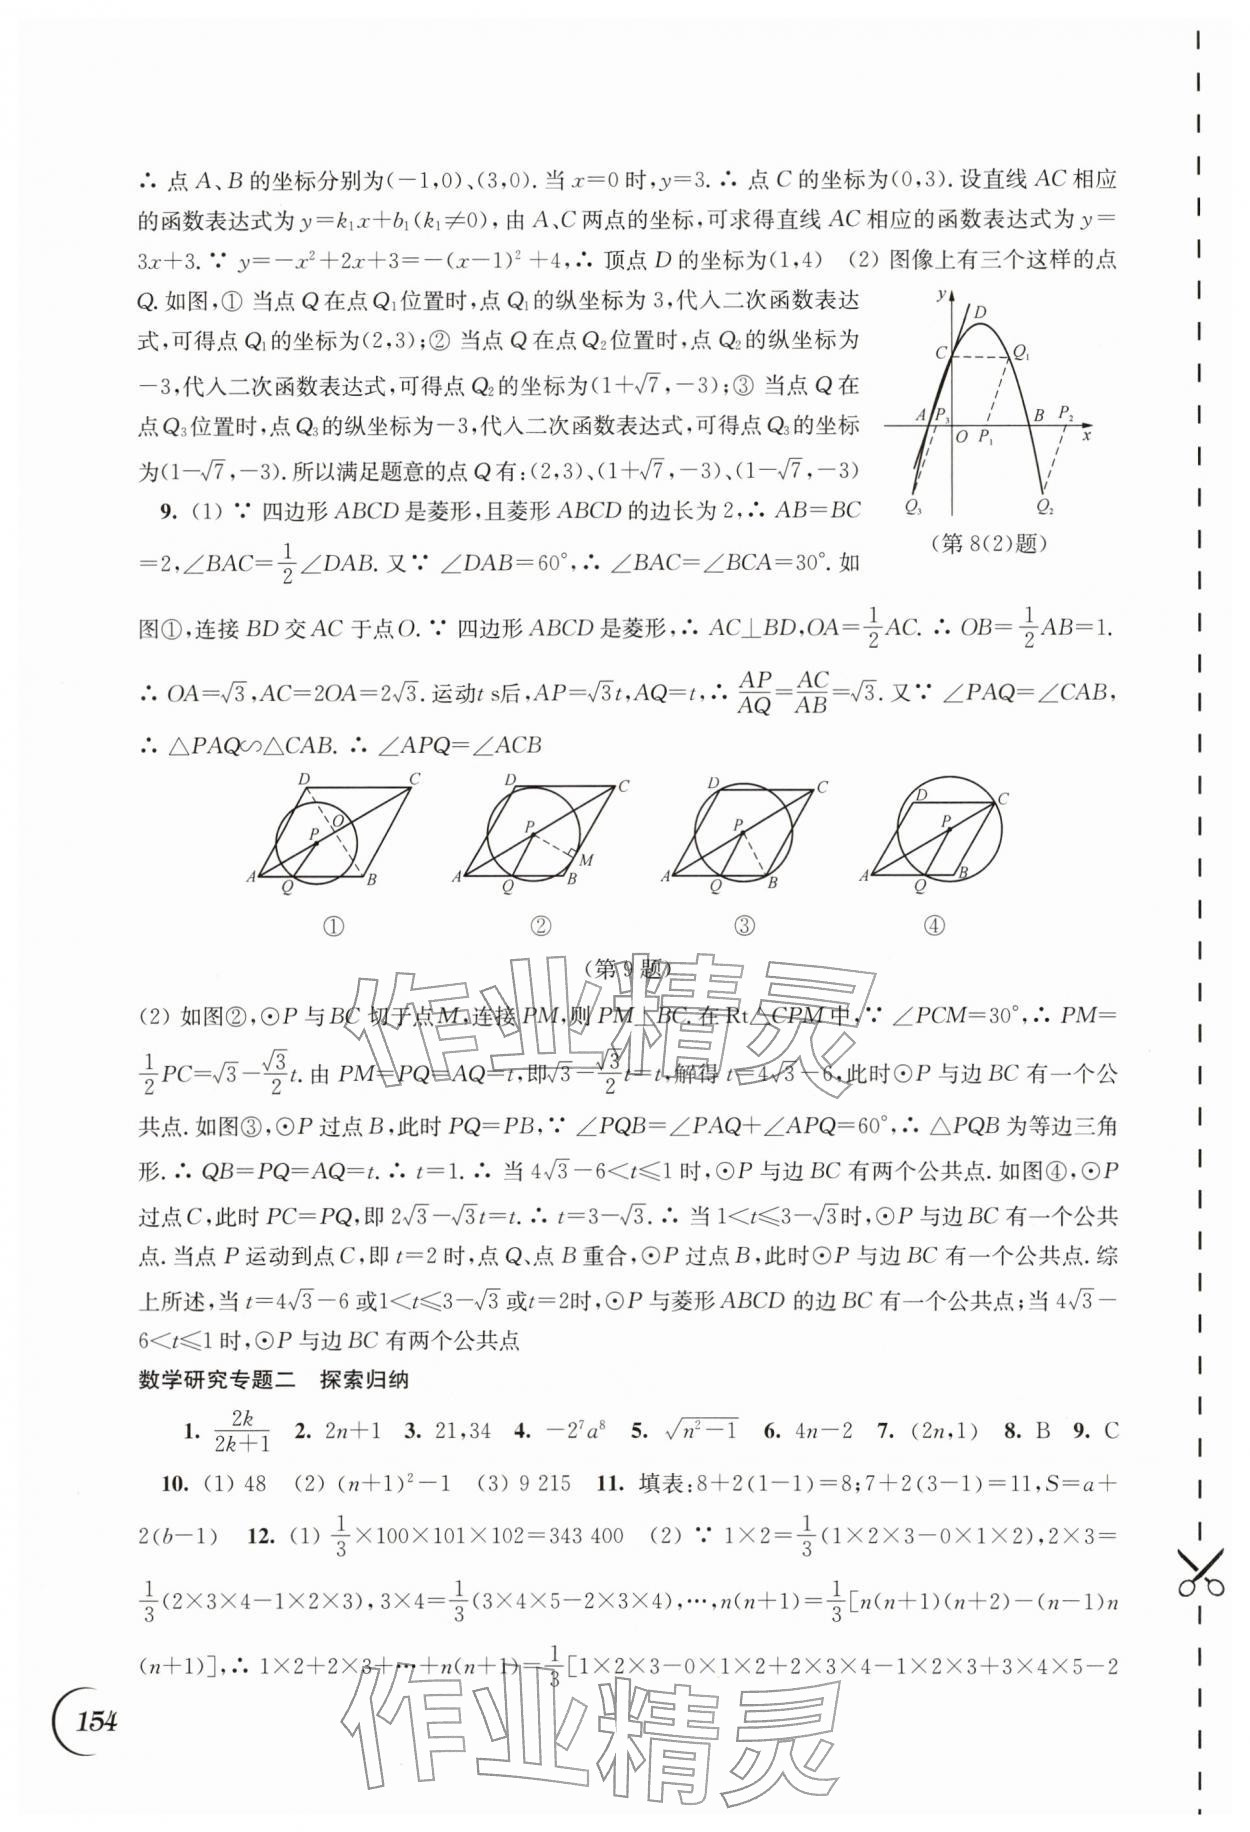 ∴ 点 A、B 的坐标分别为(−1,0)、(3,0). 当 x=0 时, y=3. ∴ 点 C 的坐标为(0,3). 设直线 AC 相应
的函数表达式为 y=k₁x+b₁(k₁≠0), 由 A、C 两点的坐标,可求得直线 AC 相应的函数表达式为 y=
3x+3. ∵ y=−x²+2x+3=−(x−1)²+4,∴ 顶点 D 的坐标为(1,4) (2) 图像上有三个这样的点
Q. 如图,① 当点 Q 在点 Q₁位置时,点 Q₁的纵坐标为 3,代入二次函数表达
式,可得点 Q₁的坐标为(2,3);② 当点 Q 在点 Q₂位置时,点 Q₂的纵坐标为
−3,代入二次函数表达式,可得点 Q₂的坐标为(1+√7,−3);③ 当点 Q 在
点 Q₃位置时,点 Q₃的纵坐标为−3,代入二次函数表达式,可得点 Q₃的坐标
为(1−√7,−3). 所以满足题意的点 Q 有:(2,3)、(1+√7,−3)、(1−√7,−3)
y
D
C
Q₁
A
P₃
B
P₂
O
P₁
x
Q₃
Q₂
(第 8(2)题)
9. (1) ∵ 四边形 ABCD 是菱形,且菱形 ABCD 的边长为 2,∴ AB=BC
=2,∠BAC=1/2∠DAB. 又∵ ∠DAB=60°,∴ ∠BAC=∠BCA=30°. 如
图①,连接 BD 交 AC 于点O. ∵ 四边形 ABCD 是菱形,∴ AC⊥BD,OA=1/2AC. ∴ OB=1/2AB=1.
∴ OA=√3,AC=2OA=2√3. 运动t s后,AP=√3t,AQ=t,∴ AP/AQ=AC/AB=√3. 又∵ ∠PAQ=∠CAB,
∴ △PAQ∽△CAB. ∴ ∠APQ=∠ACB
D C O P A Q B
D C P M A Q B
D C P A Q B
D C P A Q B
① ② ③ ④
(第 9 题)
(2) 如图②,⊙P 与 BC 切于点 M,连接 PM,则 PM⊥BC. 在 Rt△CPM 中,∵ ∠PCM=30°,∴ PM=
1/2PC=√3−√3/2t. 由 PM=PQ=AQ=t,即√3−√3/2t=t,解得 t=4√3−6,此时⊙P 与边 BC 有一个公
共点. 如图③,⊙P 过点 B,此时 PQ=PB,∵ ∠PQB=∠PAQ+∠APQ=60°,∴ △PQB 为等边三角
形. ∴ QB=PQ=AQ=t. ∴ t=1. ∴ 当 4√3−6<t⩽1 时,⊙P 与边 BC 有两个公共点. 如图④,⊙P
过点 C,此时 PC=PQ,即 2√3−√3t=t. ∴ t=3−√3. ∴ 当 1<t⩽3−√3时,⊙P 与边 BC 有一个公共
点. 当点 P 运动到点 C,即 t=2 时,点 Q、点 B 重合,⊙P 过点 B,此时⊙P 与边 BC 有一个公共点. 综
上所述,当 t=4√3−6 或1<t⩽3−√3 或t=2时,⊙P 与菱形 ABCD 的边 BC 有一个公共点;当 4√3−
6<t⩽1 时,⊙P 与边 BC 有两个公共点
数学研究专题二 探索归纳
1. 2k/(2k+1) 2. 2n+1 3. 21,34 4. −2⁷a⁸ 5. √(n²−1) 6. 4n−2 7. (2n,1) 8. B 9. C
10. (1) 48 (2) (n+1)²−1 (3) 9 215 11. 填表:8+2(1−1)=8;7+2(3−1)=11,S=a+
2(b−1) 12. (1) 1/3×100×101×102=343 400 (2) ∵ 1×2=1/3(1×2×3−0×1×2),2×3=
1/3(2×3×4−1×2×3),3×4=1/3(3×4×5−2×3×4),⋯,n(n+1)=1/3[n(n+1)(n+2)−(n−1)n
(n+1)],∴ 1×2+2×3+⋯+n(n+1)=1/3[1×2×3−0×1×2+2×3×4−1×2×3+3×4×5−2
154
作业精灵
作业精灵